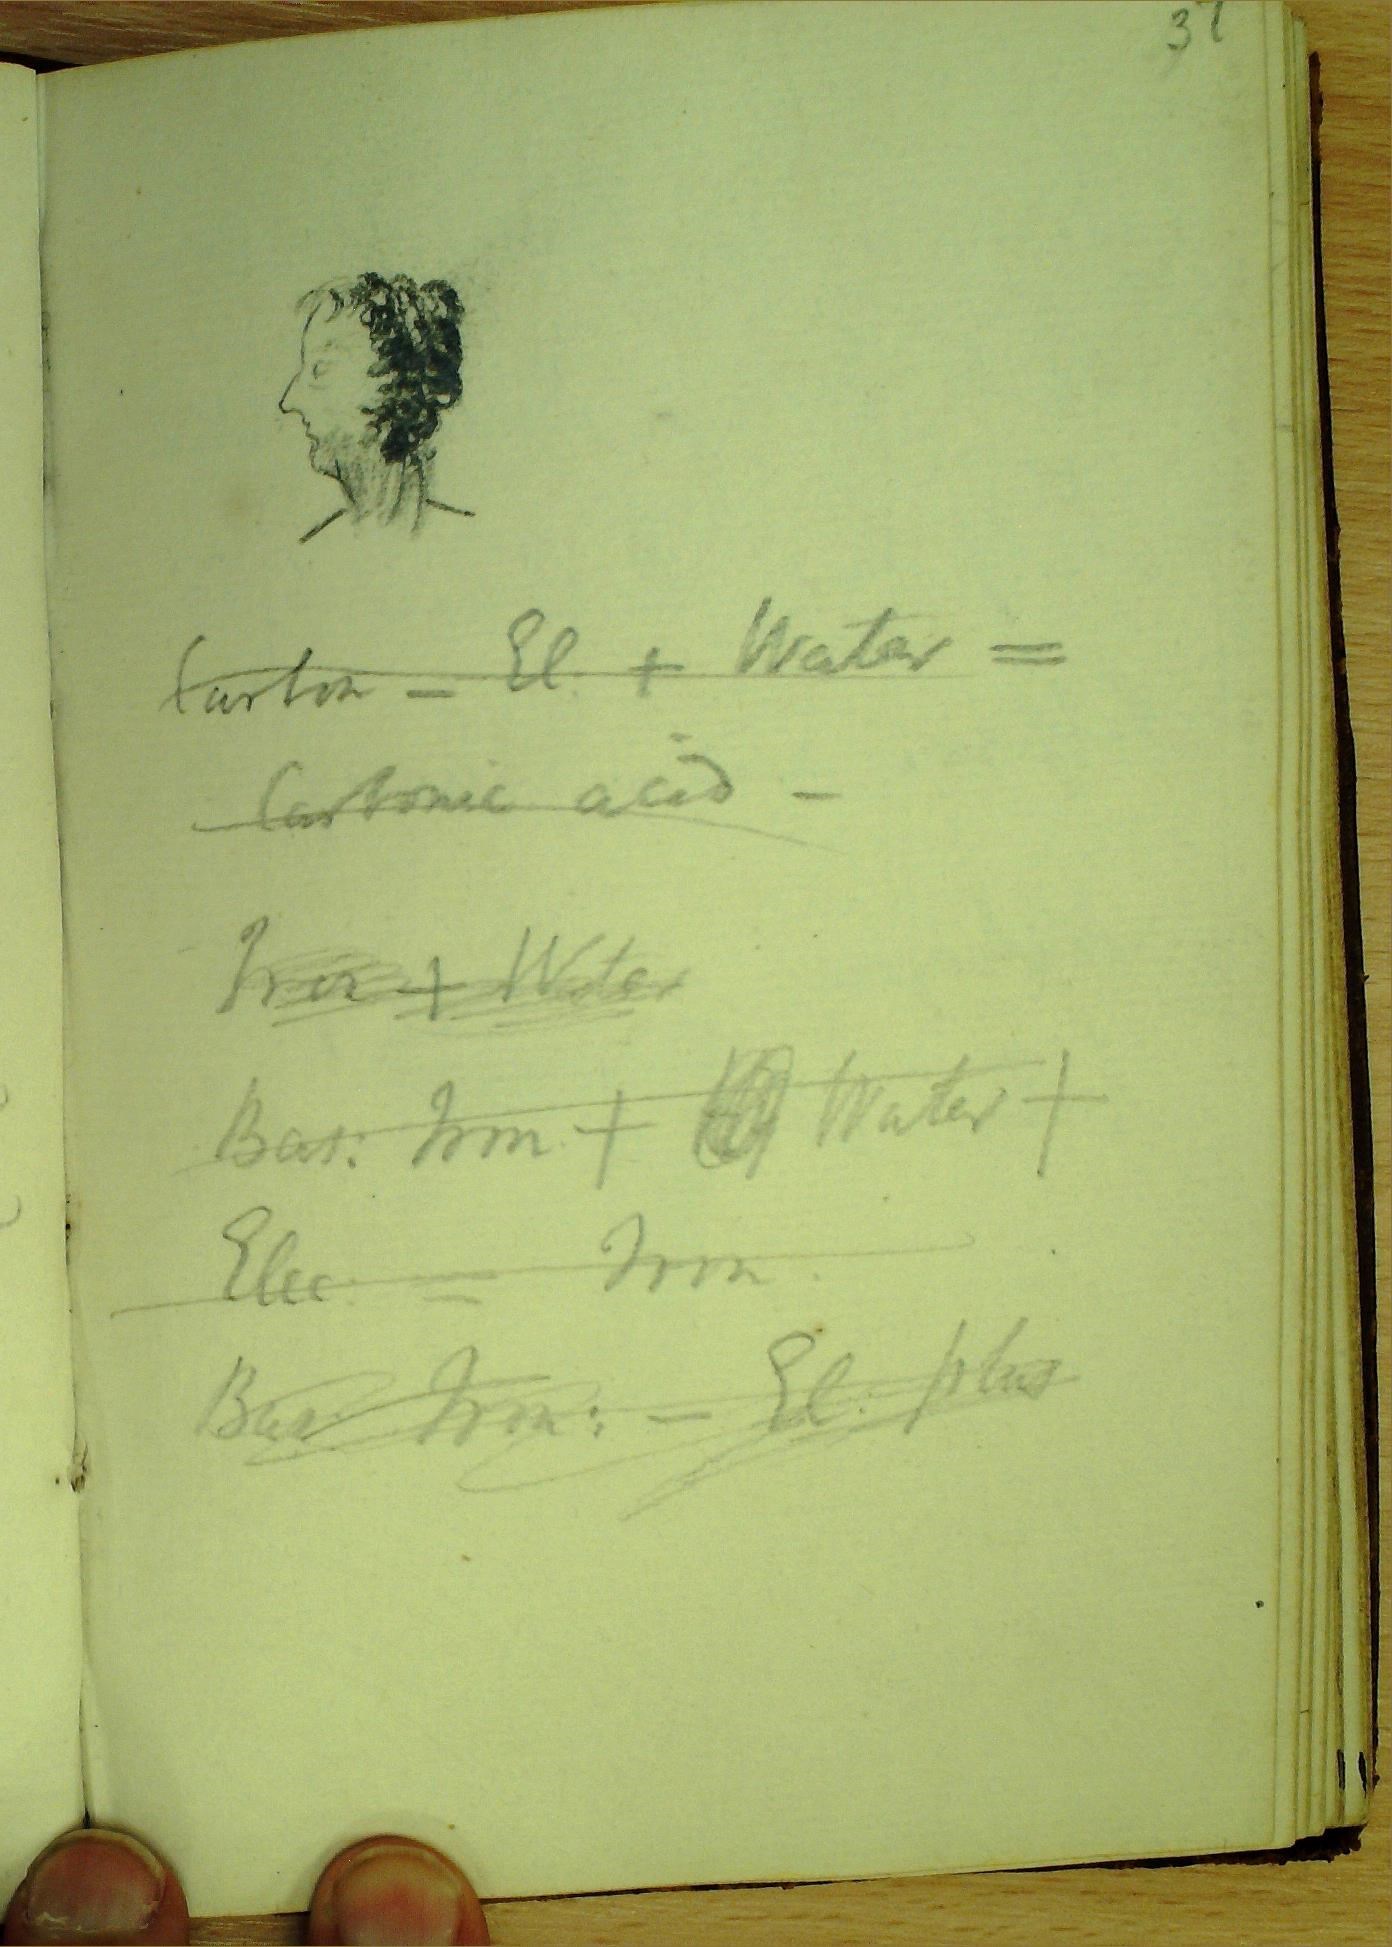 37
Carbon - El. + Water =
Carbonic acid -
Iron + Water
Bas: Iron + Water +
Elec = Iron.
Bas: Iron: - El. plus